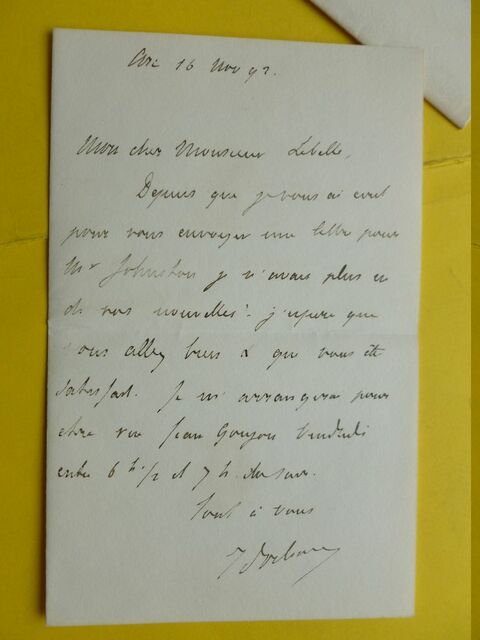 16 Nov 92.
Mon cher Monsieur Lebelle,
Depuis que je vous ai écrit
pour vous envoyer une lettre pour
Mr Johnston je n'avais plus eu
de vos nouvelles. j'espère que
vous allez bien & que vous êtes
satisfait. Je m'arrangerai pour
être rue Jean Goujon Vendredi
entre 6 h 1/2 et 7 h. du soir.
Tout à vous